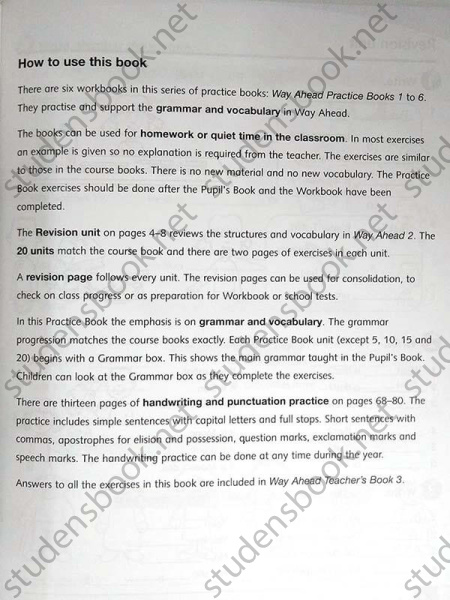 How to use this book
There are six workbooks in this series of practice books: Way Ahead Practice Books 1 to 6.
They practise and support the grammar and vocabulary in Way Ahead.
The books can be used for homework or quiet time in the classroom. In most exercises
an example is given so no explanation is required from the teacher. The exercises are similar
to those in the course books. There is no new material and no new vocabulary. The Practice
Book exercises should be done after the Pupil's Book and the Workbook have been
completed.
The Revision unit on pages 4–8 reviews the structures and vocabulary in Way Ahead 2. The
20 units match the course book and there are two pages of exercises in each unit.
A revision page follows every unit. The revision pages can be used for consolidation, to
check on class progress or as preparation for Workbook or school tests.
In this Practice Book the emphasis is on grammar and vocabulary. The grammar
progression matches the course books exactly. Each Practice Book unit (except 5, 10, 15 and
20) begins with a Grammar box. This shows the main grammar taught in the Pupil's Book.
Children can look at the Grammar box as they complete the exercises.
There are thirteen pages of handwriting and punctuation practice on pages 68–80. The
practice includes simple sentences with capital letters and full stops. Short sentences with
commas, apostrophes for elision and possession, question marks, exclamation marks and
speech marks. The handwriting practice can be done at any time during the year.
Answers to all the exercises in this book are included in Way Ahead Teacher's Book 3.
studensbook.net